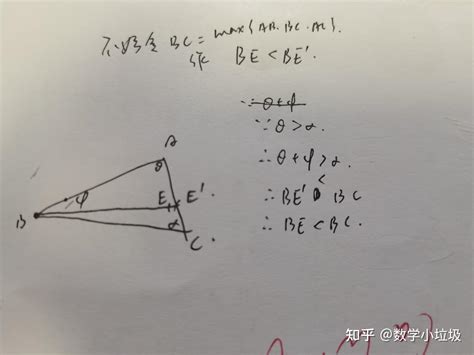 不妨令 BC = max{AB.BC.AC}.
BE < BE'.
∵ θ+φ
∵ θ>α.
∴ θ+φ>α.
∴ BE' < BC
∴ BE < BC.
A
θ
φ
E E'
B
α
C
知乎 @数学小垃圾